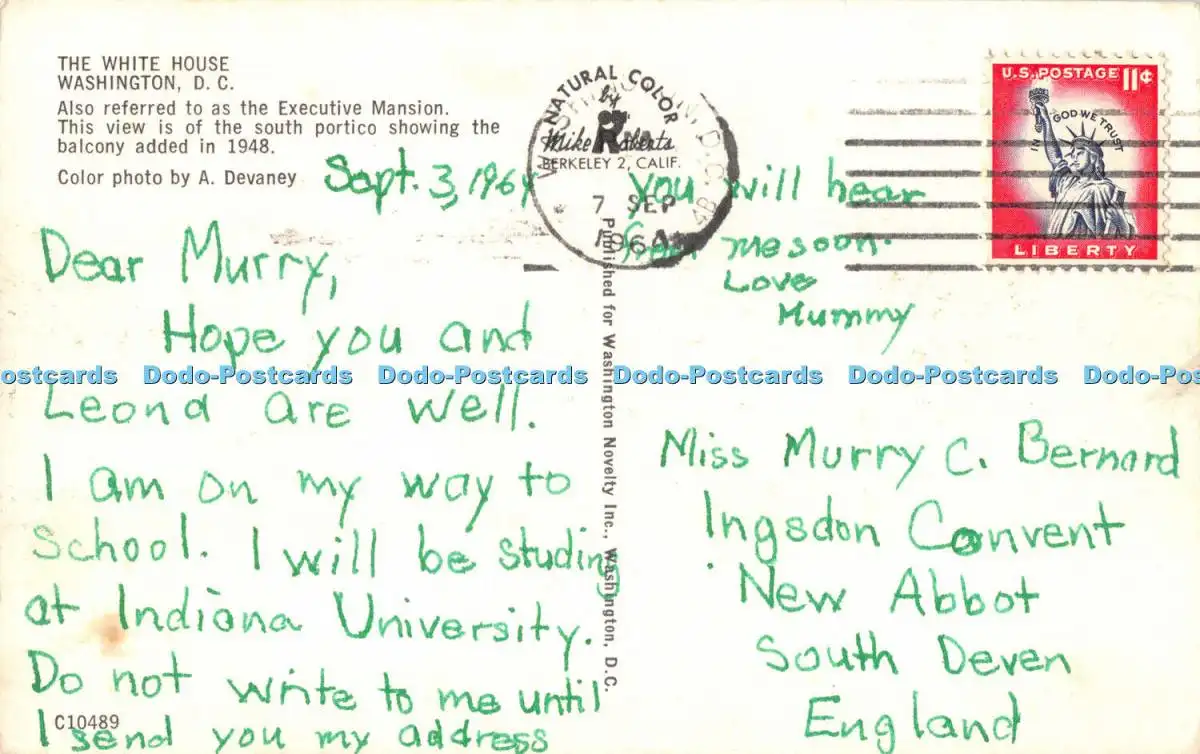 THE WHITE HOUSE
WASHINGTON, D. C.
Also referred to as the Executive Mansion.
This view is of the south portico showing the
balcony added in 1948.
Color photo by A. Devaney
Sept. 3, 1964
Dear Murry,
Hope you and
Leond are well.
I am on my way to
school. I will be studing
at Indiana University.
Do not write to me until
I send you my address
C10489
you will hear
from me soon.
Love
Mummy
NATURAL COLOR
by
Mike Roberts
BERKELEY 2, CALIF.
7 SEP
Published for Washington Novelty Inc., Washington, D.C.
U.S. POSTAGE 11¢
IN GOD WE TRUST
LIBERTY
Miss Murry C. Bernard
Ingsdon Convent
New Abbot
South Deven
England
ostcards Dodo-Postcards Dodo-Postcards Dodo-Postcards Dodo-Postcards Dodo-Pos